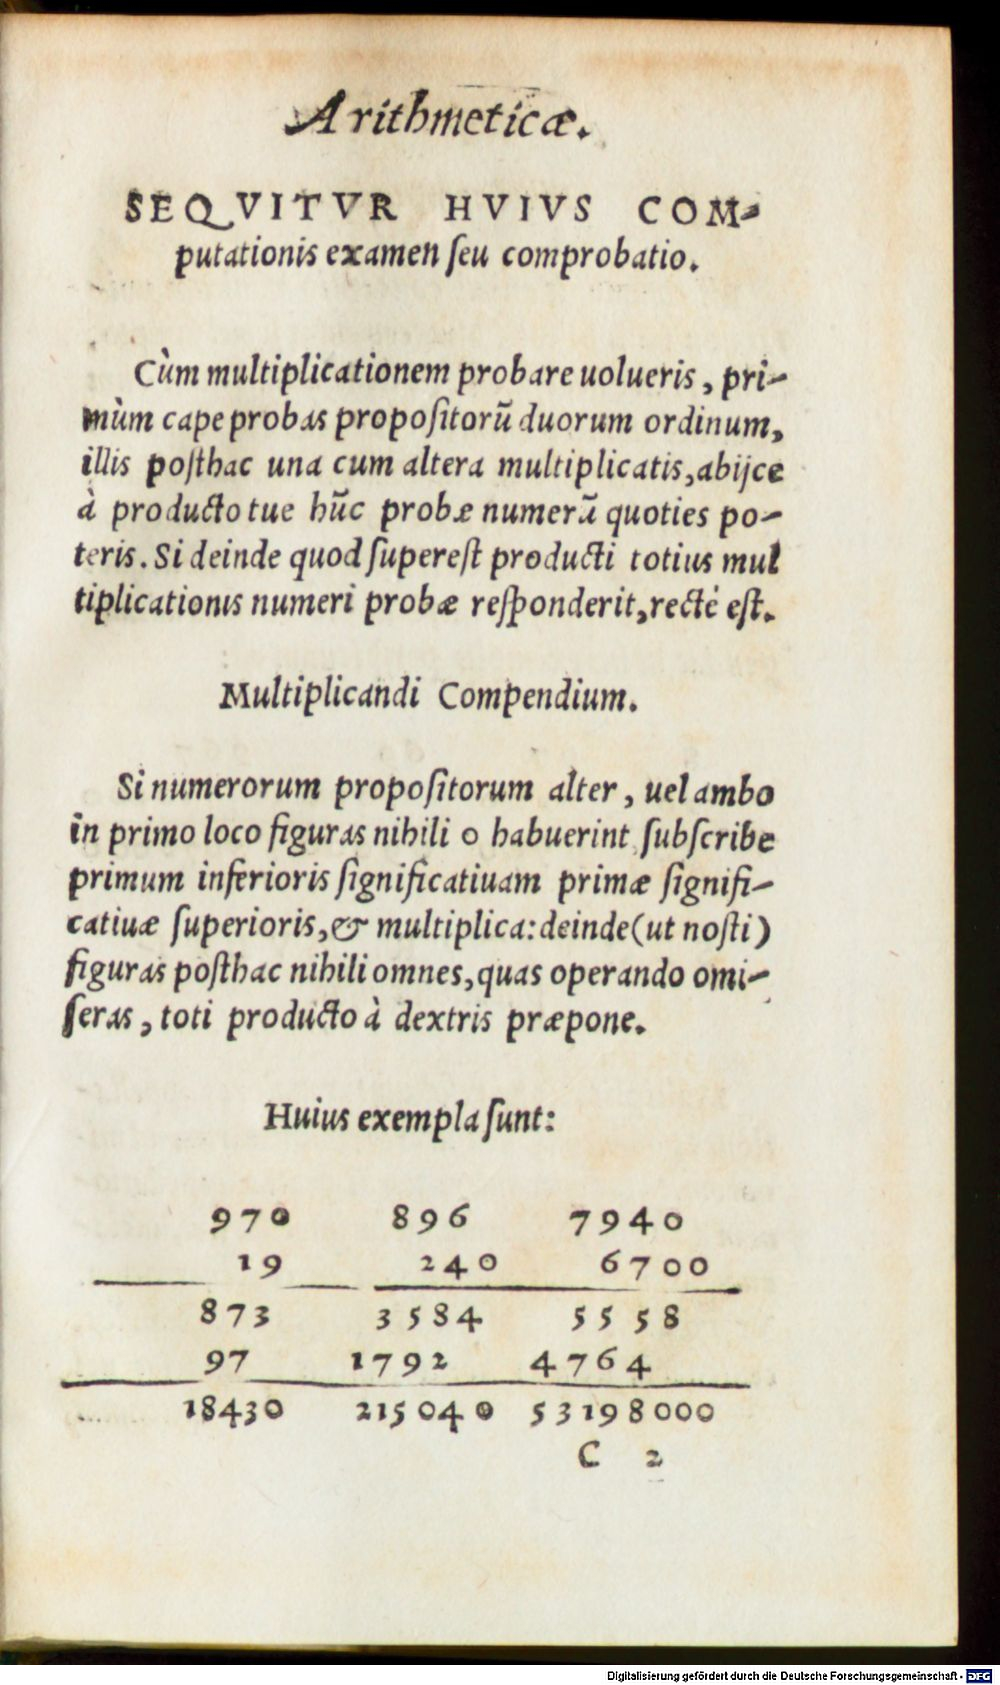 Arithmeticæ.
SEQVITVR HVIVS COM-
putationis examen ſeu comprobatio.
Cùm multiplicationem probare uolueris, pri-
mùm cape probas propoſitorũ duorum ordinum,
illis poſthac una cum altera multiplicatis, abijce
à producto tue hũc probæ numerũ quoties po-
teris. Si deinde quod ſupereſt producti totius mul
tiplicationis numeri probæ reſponderit, rectè eſt.
Multiplicandi Compendium.
Si numerorum propoſitorum alter, uel ambo
in primo loco figuras nihili 0 habuerint ſubſcribe
primum inferioris ſignificatiuam primæ ſignifi-
catiuæ ſuperioris, & multiplica: deinde (ut noſti)
figuras poſthac nihili omnes, quas operando omi-
ſeras, toti producto à dextris præpone.
Huius exempla ſunt:
970 896 7940
19 240 6700
873 3584 5558
97 1792 4764
18430 215040 53198000
C 2
Digitalisierung gefördert durch die Deutsche Forschungsgemeinschaft - DFG